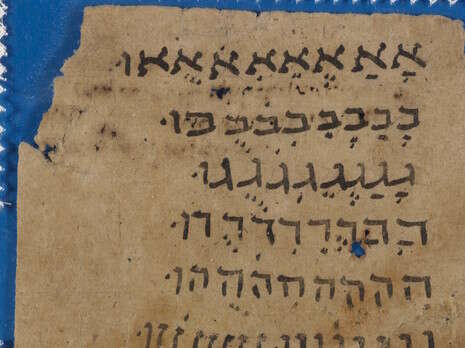 אָאַאֶאֵאִאְאאו
בָבַבֶבֵבִבְבבו
גָגַגֶגֵגִגְגגו
דָדַדֶדֵדִדְדדו
הָהַהֶהֵהִהְההו